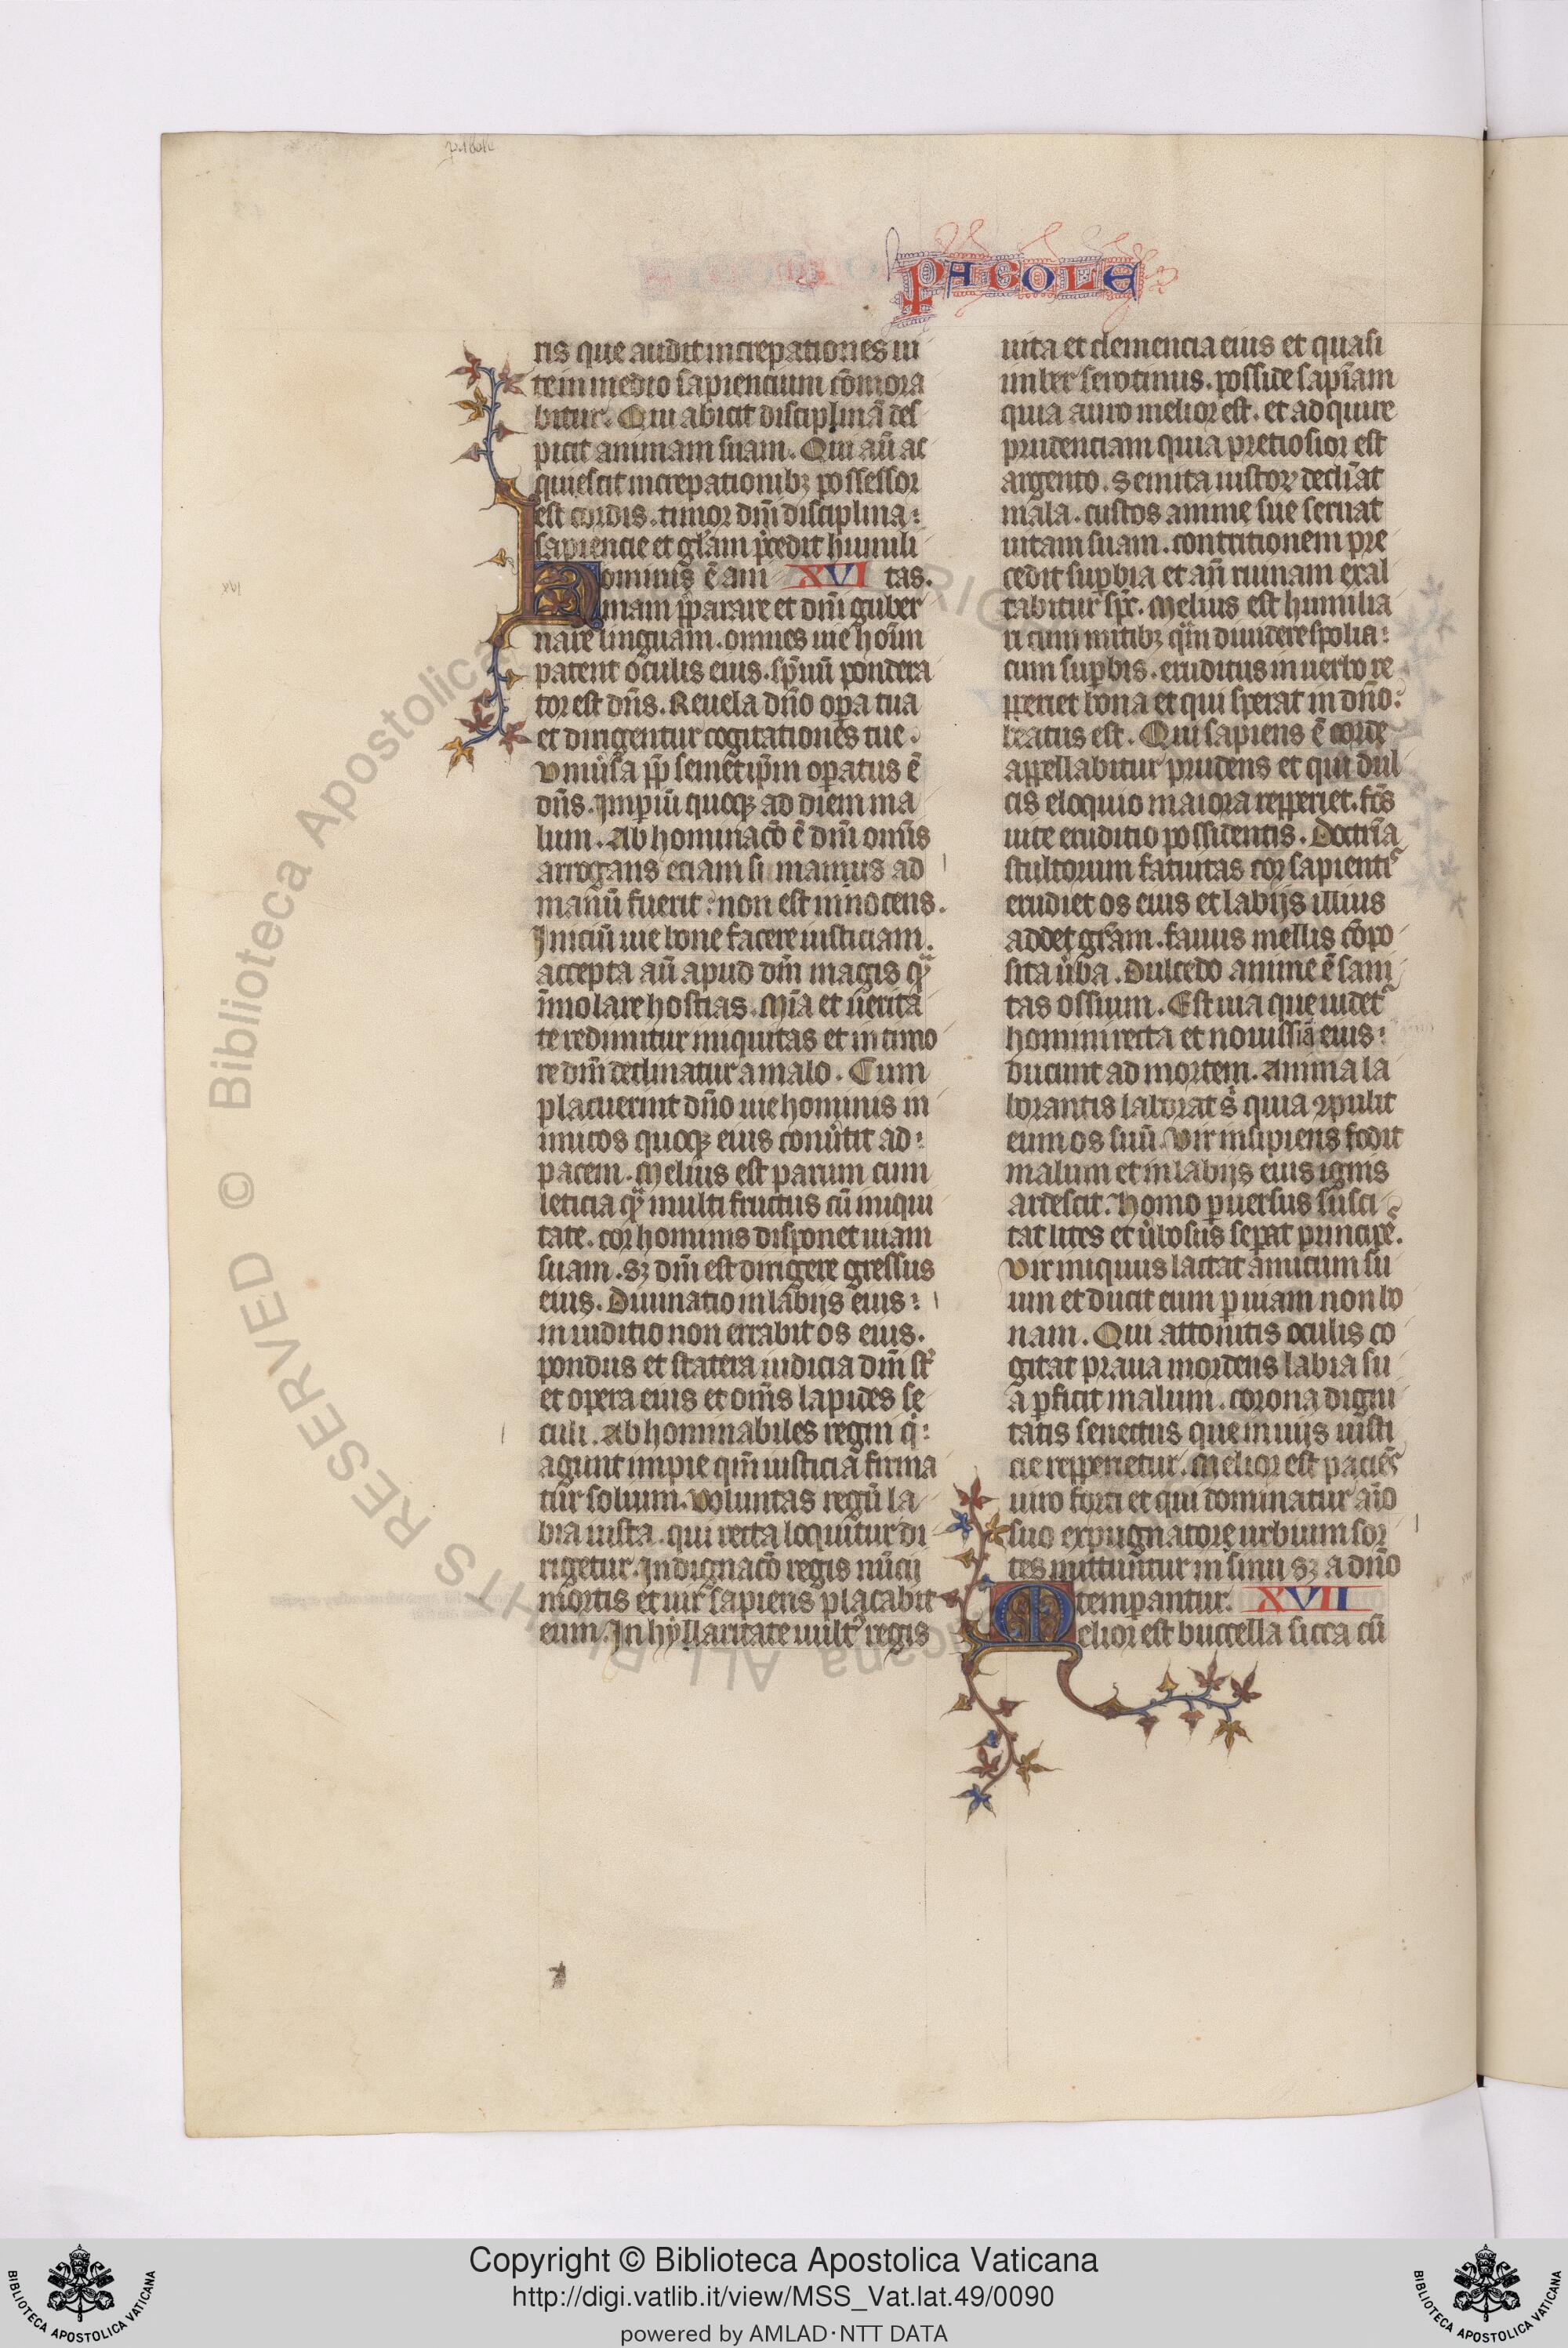 PAROLE
ris que audit increpationes ui
te in medio sapiencium cōmora
bitur. Qui abicit disciplinā des
picit animam suam. Qui aū ac
quiescit increpationibꝫ possessor
est cordis. timor dn̄i disciplina:
sapiencie et gl̄am p̄cedit humili
Hominis ē ani XVI tas.
mam p̄parare et dn̄i guber
nare linguam. omnes uie hoīm
patent oculis eius. sp̄uū pondera
tor est dn̄s. Reuela dn̄o oꝑa tua
et dirigentur cogitationes tue.
Vniūsa ꝓp̄ semetip̄m oꝑatus ē
dn̄s. Impiū quoqꝫ ad diem ma
lum. Abhominac̄o ē dn̄i omīs
arrogans eciam si manus ad
manū fuerit: non est innocens.
Iniciū uie bone facere iusticiam.
accepta aū apud dm̄ magis qᷓ
īmolare hostias. Mīa et ūerita
te redimitur iniquitas et in timo
re dn̄i declinatur a malo. Cum
placuerint dn̄o uie hominis in
imicos quoqꝫ eius conūtit ad:
pacem. Melius est parum cum
leticia qᷓ multi fructus cū iniqui
tate. cor hominis disponet uiam
suam. sꝫ dn̄i est dirigere gressus
eius. Diuinatio in labijs eius:
in iuditio non errabit os eius.
pondus et statera iudicia dn̄i st̄
et opera eius et om̄s lapides se
culi. Abhominabiles regin q̇:
agunt impie qm̄ iusticiā firma
tur̄ solium. Voluntas regū la
bia iusta. qui recta loquitur di
rigetur. Indignac̄o regis nūcij
mortis et uir sapiens placabit
eum. In hyllaritate uultꝰ regis
uita et clemencia eius et quasi
imber serotinus. posside sap̄iam
quia auro melior est. et adquire
prudenciam quia pretiosior est
argento. Semita iustoꝝ declīat
mala. custos anime sue seruat
uitam suam. contritionem pre
cedit suꝑbia et an̄ ruinam exal
tabitur sp̄c. Melius est humilia
ri cum mitibꝫ qᷓm diuidere spolia:
cum suꝑbis. eruditus in uerbo re
pperiet bona et qui sperat in dn̄o:
beatus est. Qui sapiens ē corde
appellabitur prudens et qui dul
cis eloquio maiora repperiet. fōs
uite eruditio possidentis. Doctrīa
stultorum fatuitas cor sapientꝭ
erudiet os eius et labijs illius
addet gr̄am. fauus mellis cōpo
sita ūba. Dulcedo anime ē sani
tas ossium. Est uia que uidetꝰ
homini recta et nouissīa eius:
ducunt ad mortem. Anima la
borantis laborat s̄ quia ꝯpulit
eum os suū. Vir insipiens fodit
malum et in labijs eius ignis
ardescit. Homo ꝑuersus susci
tat lites et ūbosus seꝑat principē.
Vir iniquus lactat amicum su
um et ducit eum ꝑ uiam non bo
nam. Qui attonitis oculis co
gitat praua mordens labia su
a ꝑficit malum. corona digni
tatis senectus que in uijs iusti
cie repperietur. Melior est paciēs
uiro forti et qui dominatur aīo
suo expugnatore urbium sor
tes mittuntur in sinu sꝫ a dn̄o
temꝑantur. XVII
Melior est buccella sicca cū
Copyright © Biblioteca Apostolica Vaticana
http://digi.vatlib.it/view/MSS_Vat.lat.49/0090
powered by AMLAD·NTT DATA
BIBLIOTECA APOSTOLICA VATICANA
BIBLIOTECA APOSTOLICA VATICANA